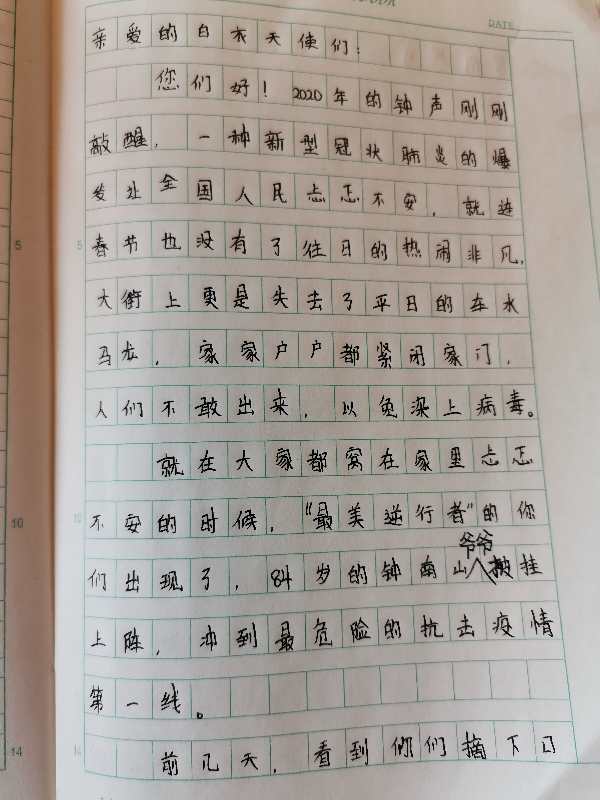 DATE
亲爱的白衣天使们：
您们好！2020年的钟声刚刚
敲醒，一种新型冠状肺炎的爆
发让全国人民忐忑不安，就连
5 5 春节也没有了往日的热闹非凡，
大街上更是失去了平日的车水
马龙，家家户户都紧闭家门，
人们不敢出来，以免染上病毒。
就在大家都窝在家里忐忑
10 不安的时候，“最美逆行者”的你
们出现了，84岁的钟南山爷爷披挂
上阵，冲到最危险的抗击疫情
第一线。
14 14 前几天，看到你们摘下口